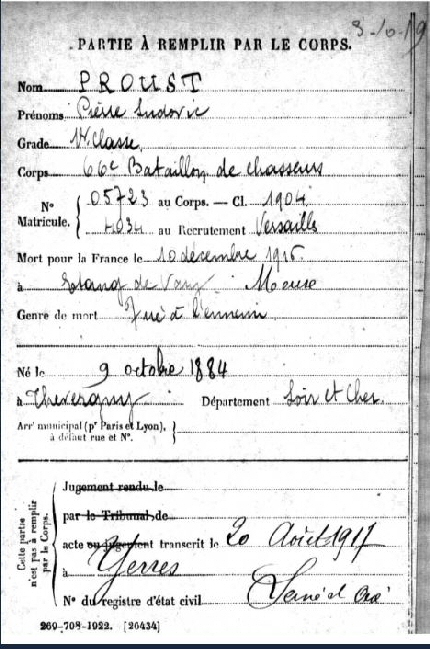 3-10-19
PARTIE À REMPLIR PAR LE CORPS.
Nom PROUST
Prénoms Pierre Ludovic
Grade Classe
Corps 66e Bataillon de chasseurs
N° Matricule. 05723 au Corps. — Cl. 1904
4034 au Recrutement Versailles
Mort pour la France le 10 décembre 1916
à Etang de Meuse
Genre de mort Tué à l'ennemi
Né le 9 octobre 1884
à Département Loir et Cher
Arrt municipal (pr Paris et Lyon),
à défaut rue et N°.
Cette partie n'est pas à remplir par le Corps.
Jugement rendu le
par le Tribunal de
acte ou jugement transcrit le 20 Août 1917
à Yerres Seine et Oise
N° du registre d'état civil
269-708-1922. [26434]